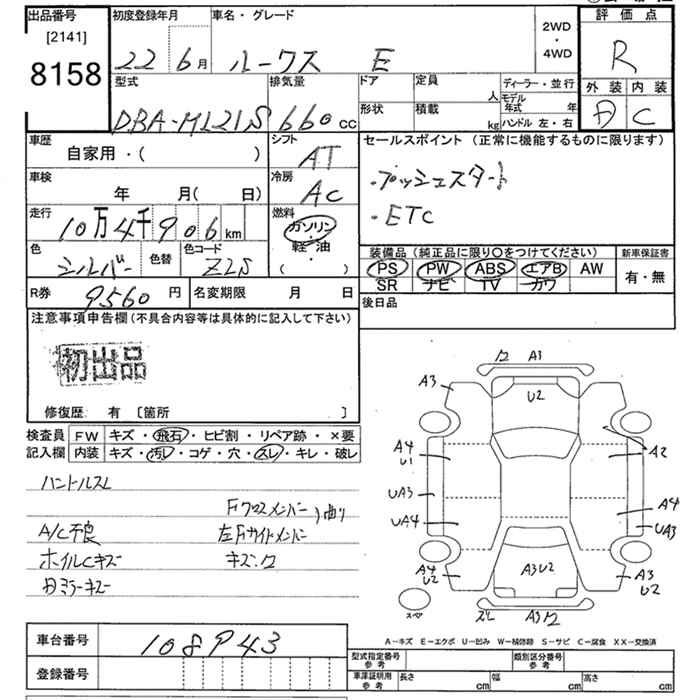 出品番号 初度登録年月 車名・グレード 2WD・4WD 評価点
[2141]
8158 22 6月 ルークス E R
型式 排気量 ドア 定員 人 ディーラー・並行 外装 内装
DBA-ML21S 660 CC 形状 積載 kg モデル年式 年 C
ハンドル 左・右
車歴 シフト セールスポイント (正常に機能するものに限ります)
自家用・( ) AT
・プッシュスタート
車検 冷房
年 月( 日) AC ・ETC
走行 燃料
10万4千906 km ガソリン
軽・油
・( )
色 色替 色コード 装備品 (純正品に限り〇をつけてください) 新車保証書
シルバー ZLS PS PW ABS エアB AW 有・無
SR ナビ TV カワ
R券 9560 円 名変期限 月 日 後日品
注意事項申告欄 (不具合内容等は具体的に記入して下さい)
初出品
修復歴 有 [箇所 ]
検査員 FW キズ・飛石・ヒビ割・リペア跡・×要
記入欄 内装 キズ・汚レ・コゲ・穴・スレ・キレ・破レ
ハンドルスレ
Fクロスメンバー 曲り
A/C不良 左Fサイドメンバー
ホイルCキズ キズ
ミラーキズ
A1
A3 U2
A4 A2
U1
UA3 A4
UA4 UA3
A4 A3U2 A3
U2 U2
スペア A3
A-キズ E-エクボ U-凹み W-補修跡 S-サビ C-腐食 XX-交換済
車台番号 108943
型式指定番号 参考 類別区分番号 参考
登録番号 車庫証明用 参考 長さ cm 幅 cm 高さ cm